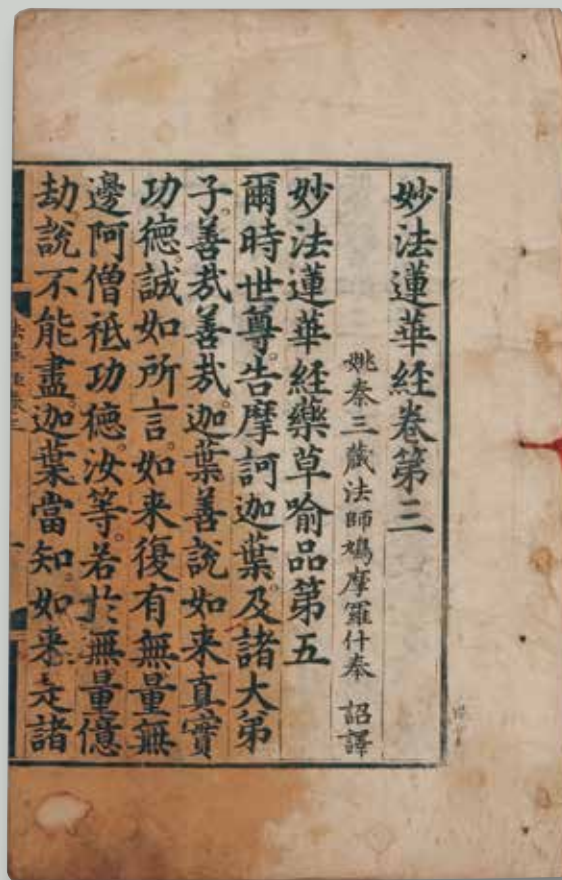 妙法蓮華経卷第三
姚秦三藏法師鳩摩羅什奉 詔譯
妙法蓮華経藥草喻品第五
爾時世尊。告摩訶迦葉。及諸大弟
子。善㢤善㢤。迦葉善說如来真實
功德。誠如所言。如来復有無量無
邊阿僧祇功德。汝等。若於無量億
劫。說不能盡。迦葉當知。如来是諸